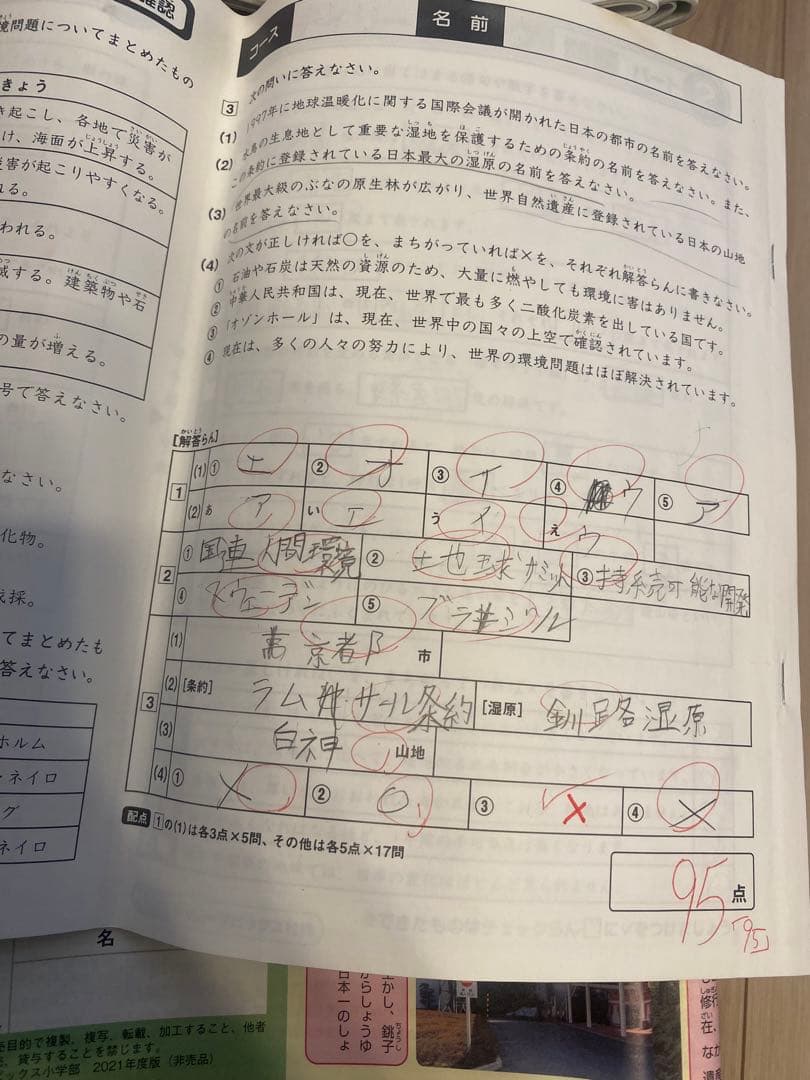 確認
境問題についてまとめたもの
きょう
き起こし、各地で災害が
け、海面が上昇する。
災害が起こりやすくなる。
れる。
われる。
減する。建築物や石
の量が増える。
号で答えなさい。
なさい。
化物。
伐採。
てまとめたも
答えなさい。
ホルム
・ネイロ
グ
ネイロ
コース
名前
3 次の問いに答えなさい。
(1) 1997年に地球温暖化に関する国際会議が開かれた日本の都市の名前を答えなさい。
(2) 水鳥の生息地として重要な湿地を保護するための条約の名前を答えなさい。また、
この条約に登録されている日本最大の湿原の名前を答えなさい。
(3) 世界最大級のぶなの原生林が広がり、世界自然遺産に登録されている日本の山地
の名前を答えなさい。
(4) 次の文が正しければ○を、まちがっていれば×を、それぞれ解答らんに書きなさい。
① 石油や石炭は天然の資源のため、大量に燃やしても環境に害はありません。
② 中華人民共和国は、現在、世界で最も多く二酸化炭素を出している国です。
③ 「オゾンホール」は、現在、世界中の国々の上空で確認されています。
④ 現在は、多くの人々の努力により、世界の環境問題はほぼ解決されています。
[解答らん]
1 (1) ① エ ② オ ③ イ ④ ウ ⑤ ア
(2) あ ア い エ う イ え ウ
2 ① 国連人間環境 ② 地球サミット ③ 持続可能な開発
④ スウェーデン ⑤ ブラジル
3 (1) 京都 市
(2) [条約] ラムサール条約 [湿原] 釧路湿原
(3) 白神 山地
(4) ① × ② ○ ③ × ④ ×
配点 1の(1)は各3点×5問、その他は各5点×17問
95 点
「95」
名
売目的で複製、複写、転載、加工すること、他者
貸与することを禁じます。
ックス小学部 2021年度版(非売品)
生かし、銚子
からしょうゆ
日本一のしょ
修行
在、
な
遺産